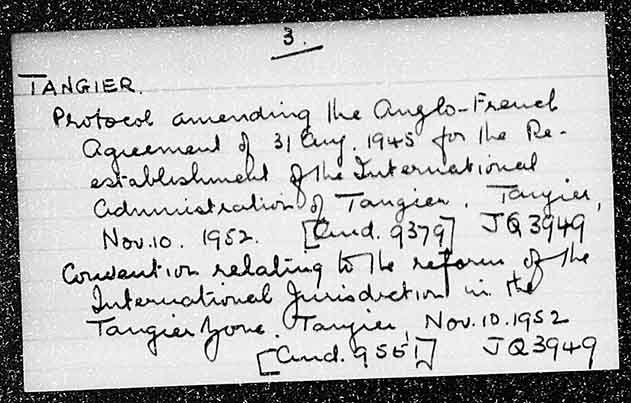 3.
TANGIER.
Protocol amending the Anglo-French
Agreement of 31 Aug. 1945 for the Re-
establishment of the International
Administration of Tangier. Tangier,
Nov.10. 1952. [Cmd. 9379] JQ3949
Convention relating to the reform of the
International Jurisdiction in the
Tangier Zone. Tangier, Nov.10.1952
[Cmd. 9551] JQ3949